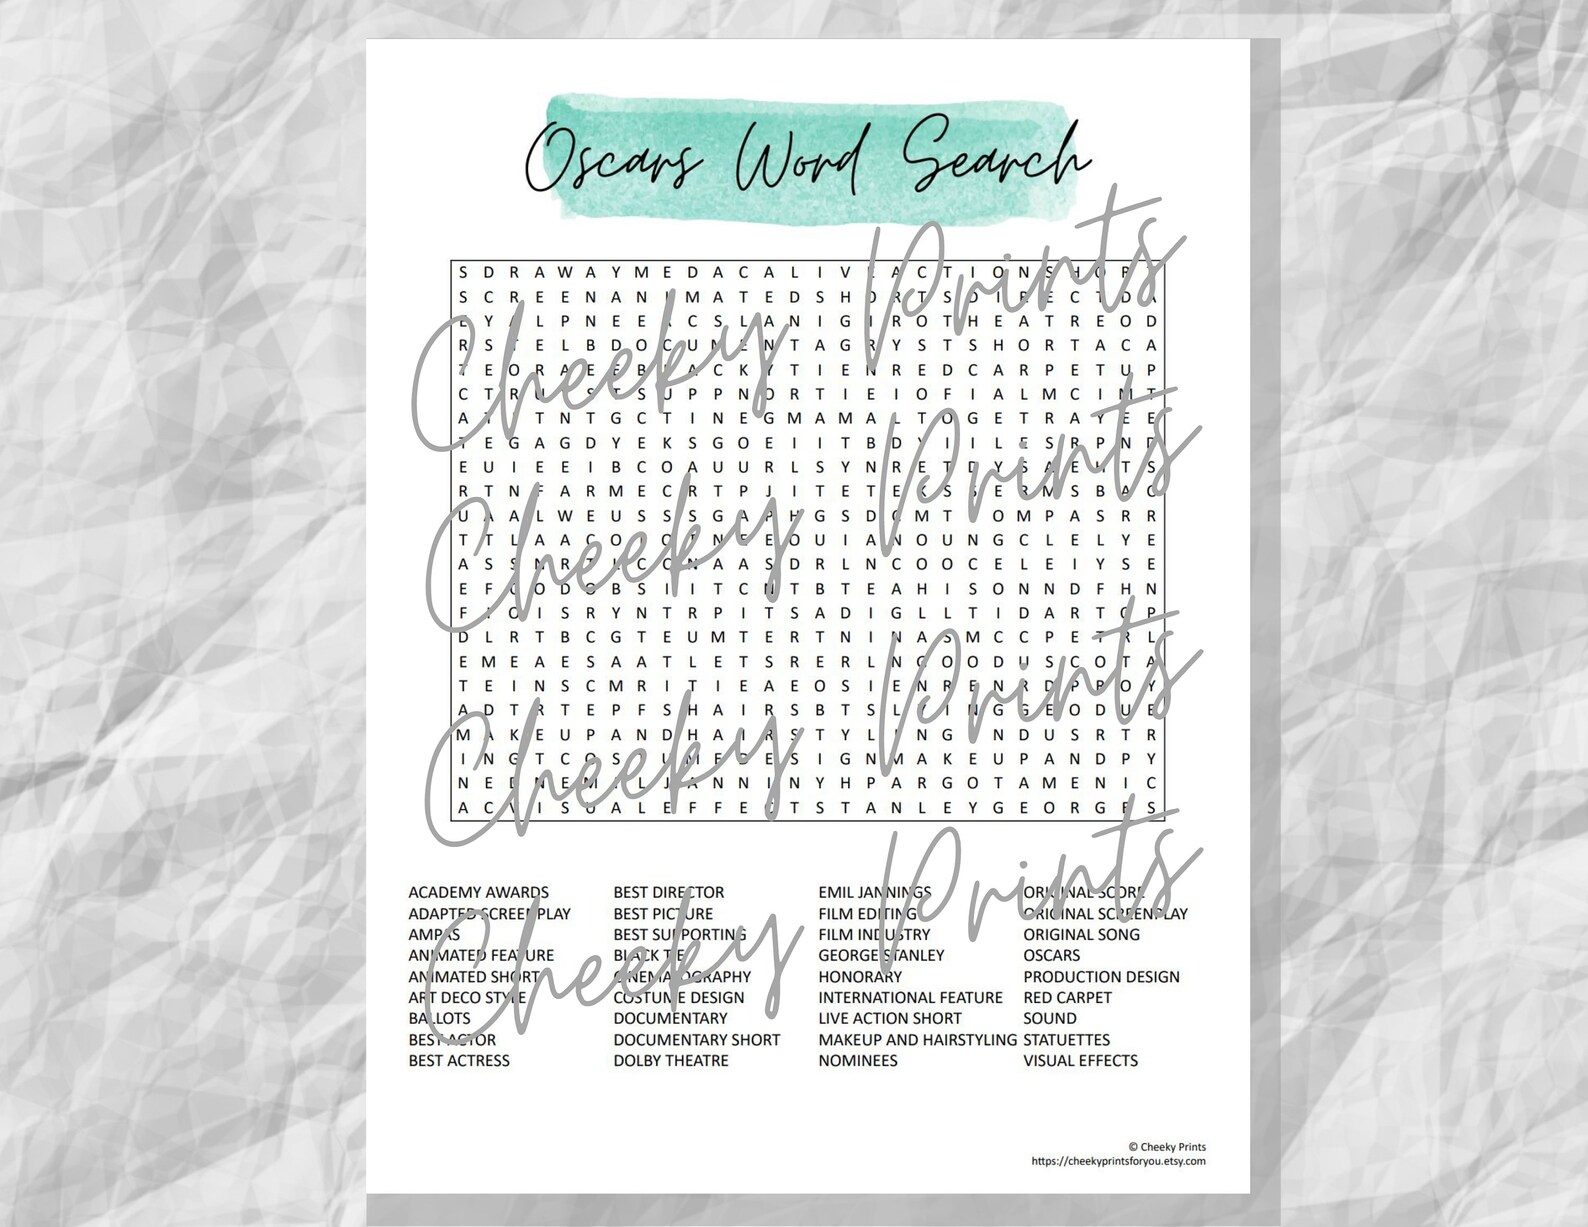 Oscars Word Search
Cheeky Prints
S D R A W A Y M E D A C A L I V A C T I O N S H O R
S C R E E N A N M A T E D S H O R T S D I R E C T D A
E Y L P N E E C S L A N I G I R O T H E A T R E O D
R S T E L B D O C U M E N T A G R Y S T S H O R T A C A
T E O R A E E B L A C K Y T I E N R E D C A R P E T U P
C T R U S T S U P P N O R T I E I O F I A L M C I M T
A T T N T G C T I N E G M A M A L T O G E T R A Y E E
T E G A G D Y E K S G O E I I T B D Y I I L E S R P N D
E U I E E I B C O A U U R L S Y N R E T D Y S A E H T S
R T N F A R M E C R T P J I T E T E K S S E R M S B A C
U A A L W E U S S S G A P H G S D C M T O M P A S R R
T T L A A C O I O T N E E O U I A N O U N G C L E L Y E
A S S N R T L C O N A A S D R L N C O O C E L E I Y S E
E F C O D G B S I I T C N T B T E A H I S O N N D F H N
F I O I S R Y N T R P I T S A D I G L L T I D A R T C P
D L R T B C G T E U M T E R T N I N A S M C C P E T R L
E M E A E S A A T L E T S R E R L N G O O D U S C O T A
T E I N S C M R I T I E A E O S I E N R E N R D P R O Y
A D T R T E P F S H A I R S B T S L Y I N G G E O D U E
M A K E U P A N D H A I R S T Y L I N G I N D U S R T R
I N G T C O S T U M E D E S I G N M A K E U P A N D P Y
N E D N E M I L J A N N I N Y H P A R G O T A M E N I C
A C V I S U A L E F F E C T S T A N L E Y G E O R G E S
Cheeky Prints
Cheeky Prints
Cheeky Prints
ACADEMY AWARDS BEST DIRECTOR EMIL JANNINGS ORIGINAL SCORE
ADAPTED SCREENPLAY BEST PICTURE FILM EDITING ORIGINAL SCREENPLAY
AMPAS BEST SUPPORTING FILM INDUSTRY ORIGINAL SONG
ANIMATED FEATURE BLACK TIE GEORGE STANLEY OSCARS
ANIMATED SHORT CINEMATOGRAPHY HONORARY PRODUCTION DESIGN
ART DECO STYLE COSTUME DESIGN INTERNATIONAL FEATURE RED CARPET
BALLOTS DOCUMENTARY LIVE ACTION SHORT SOUND
BEST ACTOR DOCUMENTARY SHORT MAKEUP AND HAIRSTYLING STATUETTES
BEST ACTRESS DOLBY THEATRE NOMINEES VISUAL EFFECTS
© Cheeky Prints
https://cheekyprintsforyou.etsy.com